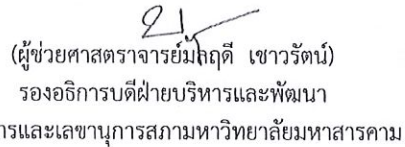 (ผู้ช่วยศาสตราจารย์มลฤดี เชาวรัตน์)
รองอธิการบดีฝ่ายบริหารและพัฒนา
การและเลขานุการสภามหาวิทยาลัยมหาสารคาม